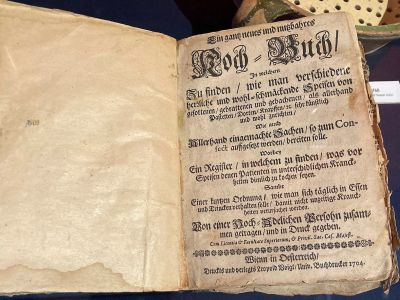 Ein gantz neues und nutzbahres
Koch-Buch/
In welchem
Zu finden / wie man verschiedene
herrliche und wohl-schmäckende Speisen von
gesottenen / gebrattenen und gebachenen / als allerhand
Pasteten / Dorten / Krapffen / ꝛc. sehr künstlich
und wohl zurichten /
Wie auch
Allerhand eingemachte Sachen / so zum Con-
fect auffgesetzt werden / bereiten solle.
Ein Register / in welchem zu finden / was vor
Speisen denen Patienten in unterschidlichen Kranck-
heiten dienlich zu kochen seyen.
Sambt
Einer kurtzen Ordnung / wie man sich täglich in Essen
und Trincken verhalten solle / damit nicht urplitzige Kranck-
heiten verursachet werden.
Von einer Hoch-Adelichen Persohn zusam-
men getragen / und in Druck gegeben.
Cum Licentia & Facultate Superiorum, & Privil. Sac. Cæs. Majest.
Wienn in Oesterreich /
Druckts und verlegts Leopold Voigt / Univ. Buchdrucker 1704.